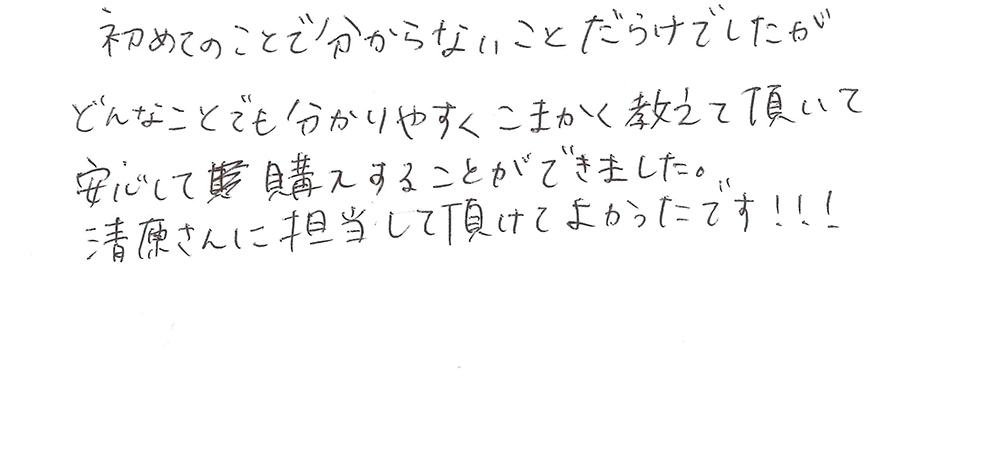 初めてのことで分からないことだらけでしたが
どんなことでも分かりやすくこまかく教えて頂いて
安心して購入することができました。
清原さんに担当して頂けてよかったです!!!